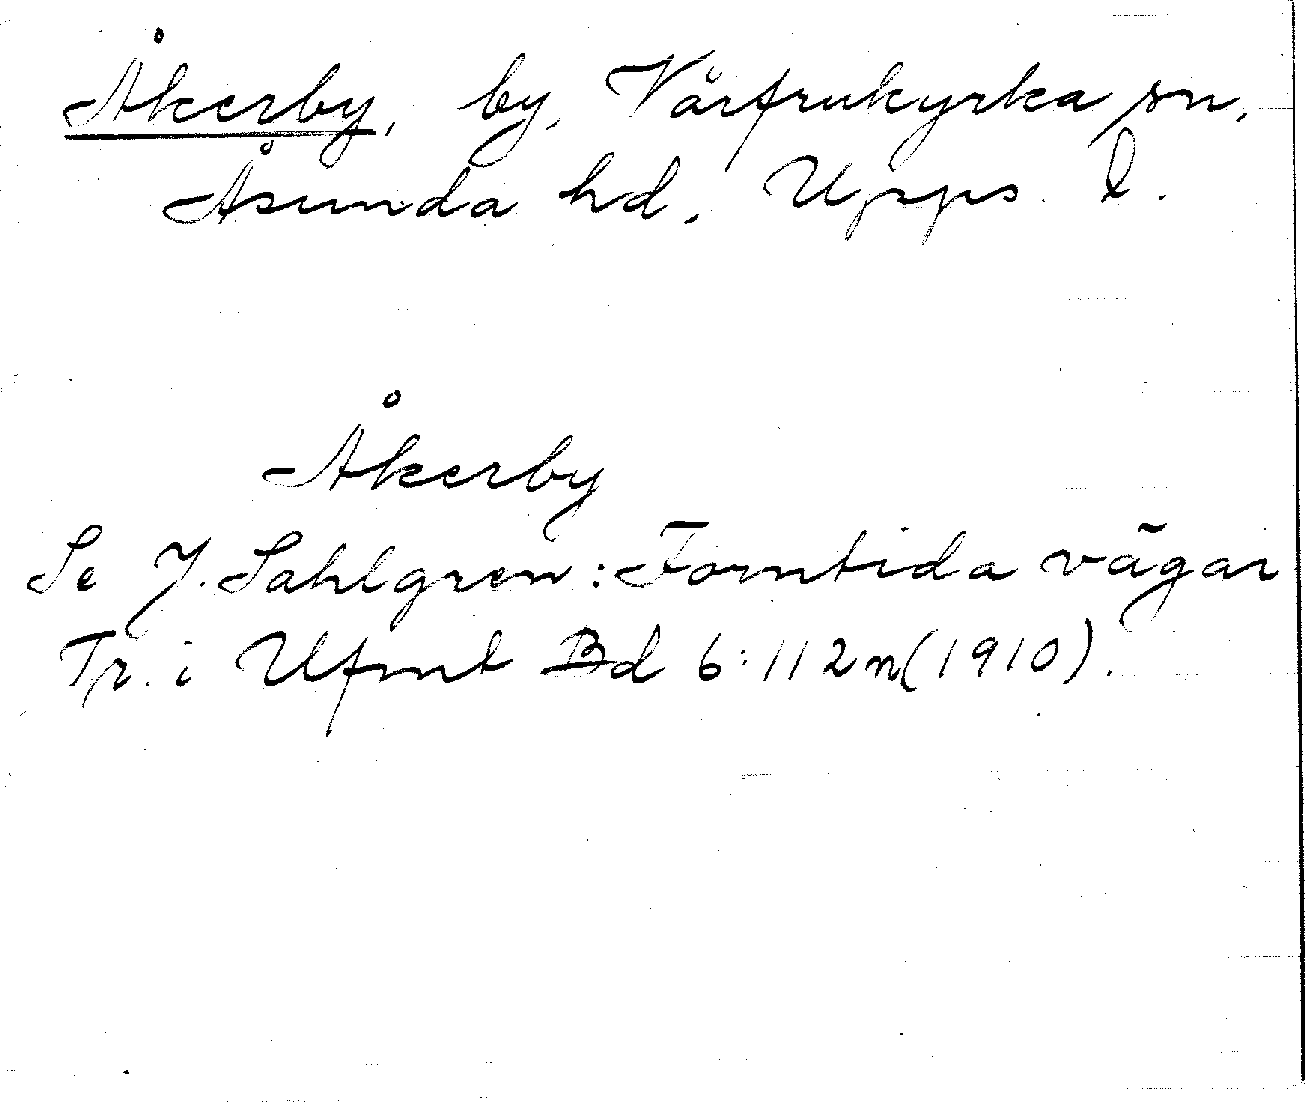 Åkerby, by, Vårfrukyrka sn,
Åsunda hd, Upps. l.
Åkerby
Se J. Sahlgren: Forntida vägar
Tr. i Ufmt Bd 6:112 n (1910).